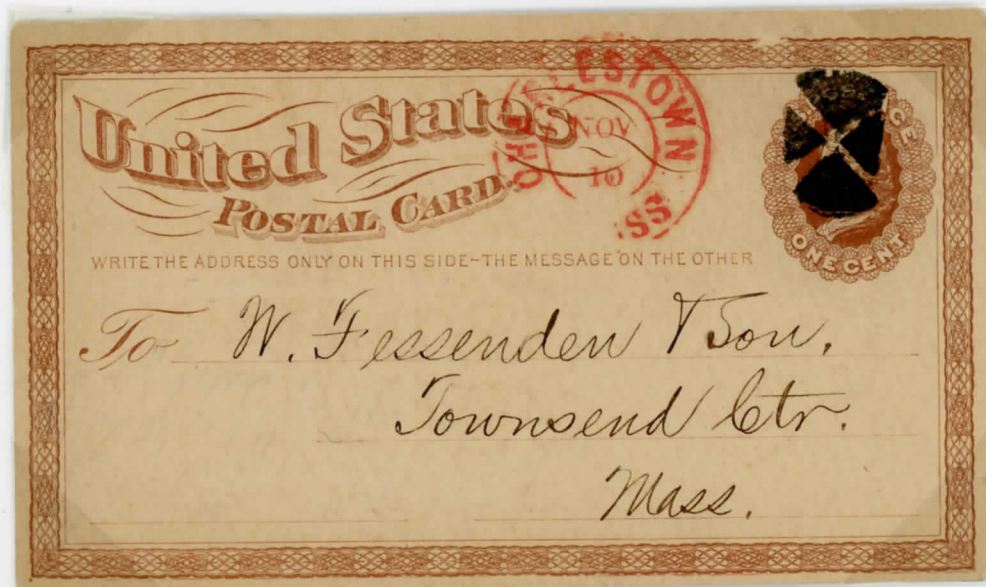 United States
POSTAL CARD.
CHARLESTOWN
NOV
10
SS
WRITE THE ADDRESS ONLY ON THIS SIDE-THE MESSAGE ON THE OTHER
ONE CENT
To W. Fessenden & Son.
Townsend Ctr.
Mass.